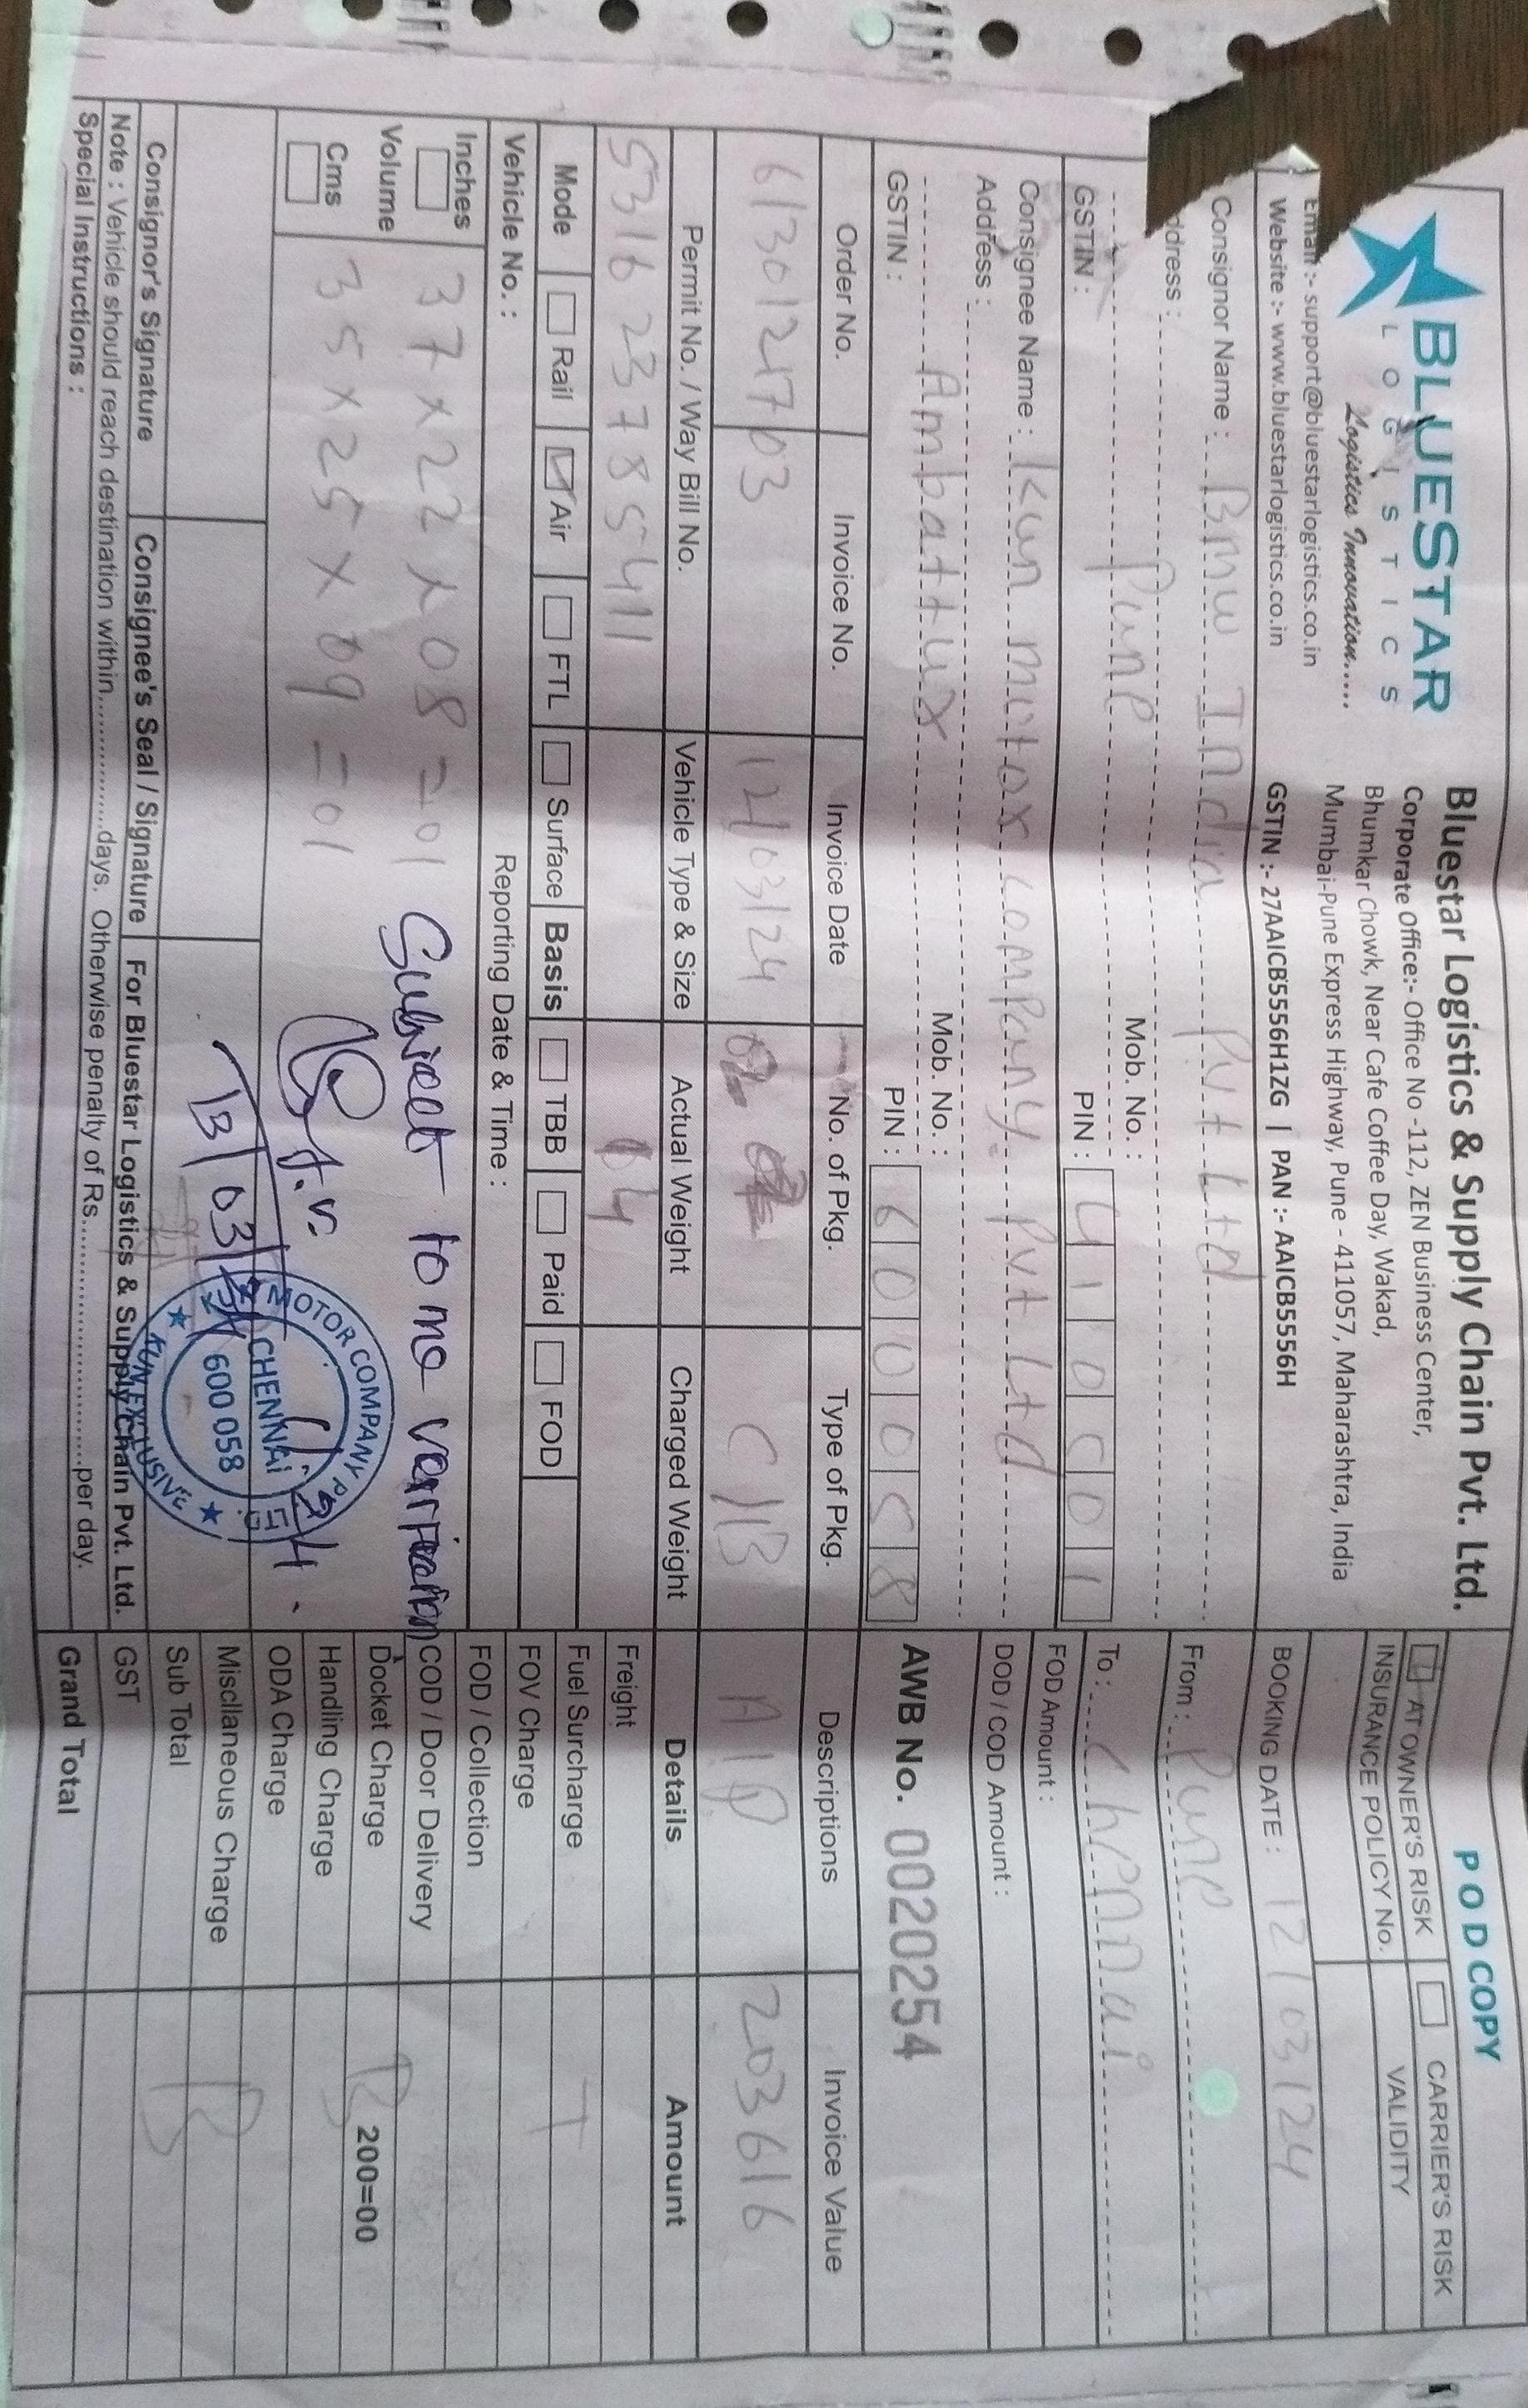 BLUESTAR
LOGISTICS
Logistics Innovation.....
Email :- support@bluestarlogistics.co.in
Website :- www.bluestarlogistics.co.in
Bluestar Logistics & Supply Chain Pvt. Ltd.
Corporate Office:- Office No -112, ZEN Business Center,
Bhumkar Chowk, Near Cafe Coffee Day, Wakad,
Mumbai-Pune Express Highway, Pune - 411057, Maharashtra, India
GSTIN :- 27AAICB5556H1ZG | PAN :- AAICB5556H
POD COPY
AT OWNER'S RISK CARRIER'S RISK
INSURANCE POLICY No. VALIDITY
BOOKING DATE : 12/03/24
From : Pune
To : Chennai
FOD Amount :
DOD / COD Amount :
AWB No. 0020254
Consignor Name : Bmw India Pvt Ltd
ddress :
Pune Mob. No. :
GSTIN : PIN : 410501
Consignee Name : Kun motor company Pvt Ltd
Address :
Ambattur Mob. No. :
GSTIN : PIN : 600058
Order No. Invoice No. Invoice Date No. of Pkg. Type of Pkg. Descriptions Invoice Value
6130121703 12/03/24 02 C/B A/P 203616
Permit No. / Way Bill No. Vehicle Type & Size Actual Weight Charged Weight Details Amount
531623785411 14
Mode Rail Air FTL Surface Basis TBB Paid FOD
Vehicle No. : Reporting Date & Time :
Inches
Volume
Cms
37 x 22 x 08 = 01
35 x 25 x 09 = 01
Subject to me verification
13/03/24
KUN MOTOR COMPANY PVT. LTD.
CHENNAi
600 058
KUN EXCLUSIVE
Freight
Fuel Surcharge T
FOV Charge
FOD / Collection
COD / Door Delivery
Docket Charge B 200=00
Handling Charge
ODA Charge
Miscllaneous Charge B
Sub Total
GST
Grand Total
Consignor's Signature Consignee's Seal / Signature For Bluestar Logistics & Supply Chain Pvt. Ltd.
Note : Vehicle should reach destination within.................days. Otherwise penalty of Rs..............................per day.
Special Instructions :